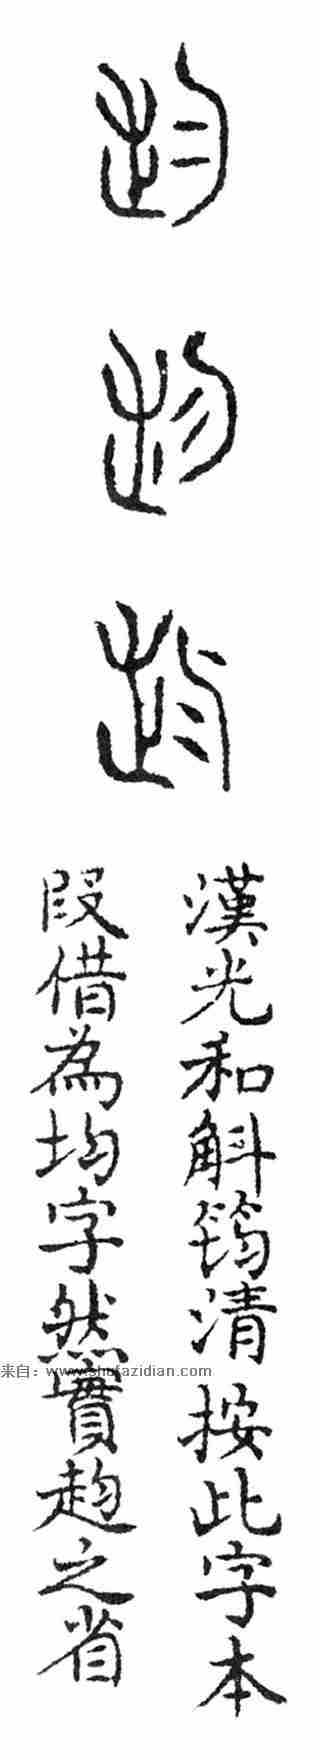 漢光和斛筠清按此字本
叚借為均字然實赹之省
来自：www.shufazidian.com